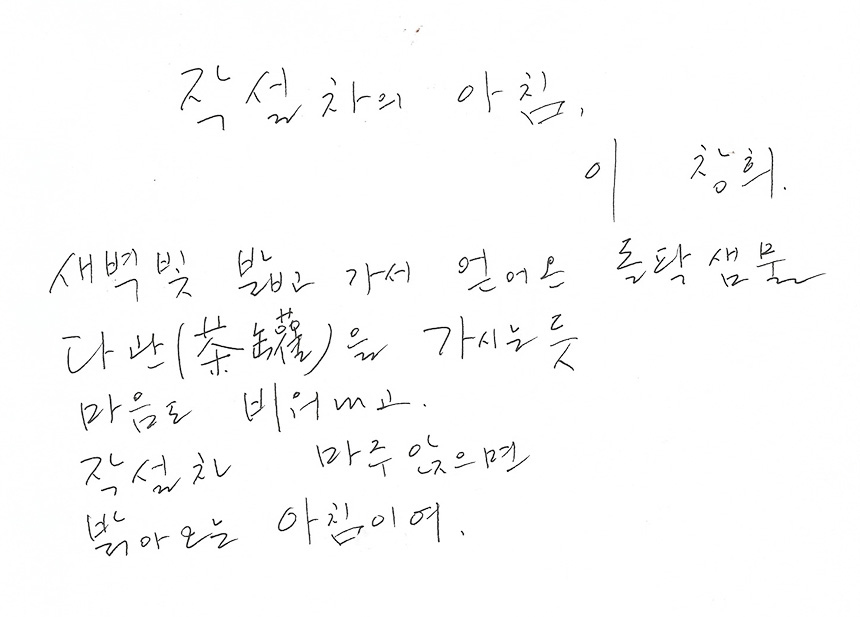 작설차의 아침.
이 창희.
새벽빛 밟고 가서 얻어온 돌탁샘물
다관(茶罐)을 가시는듯
마음도 비워내고.
작설차 마주앉으면
밝아오는 아침이여.